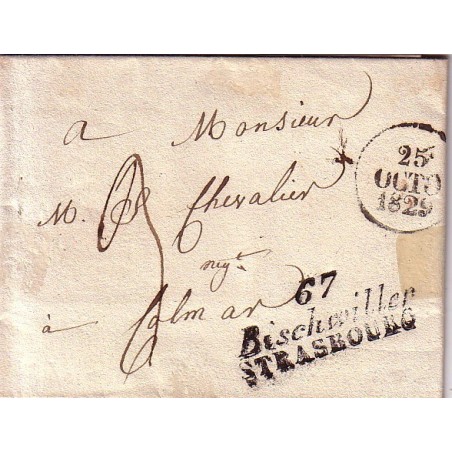 a Monsieur
M. Chevalier
negt.
à Colmar
25
OCTO
1829
67
Bischwiller
STRASBOURG